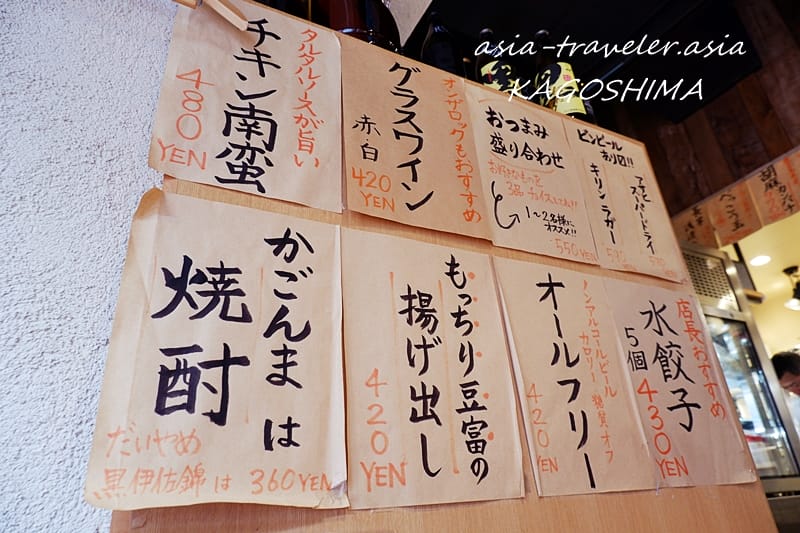 asia-traveler.asia
KAGOSHIMA
タルタルソースが旨い
チキン南蛮
480
YEN
オンザロックもおすすめ
グラスワイン
赤 白
420
YEN
おつまみ
盛り合わせ
お好きなものを
3品 チョイスしてね!!
1〜2名様に
オススメ!!
550YEN
ビンビール
あり〼!!
アサヒ
スーパードライ
570
YEN
キリンラガー
570
YEN
かごんまは
焼酎
だいやめ
黒伊佐錦は 360YEN
もっちり豆富の
揚げ出し
420
YEN
ノンアルコールビール
カロリー・糖質オフ
オールフリー
420
YEN
店長おすすめ
水餃子
5個
430
YEN